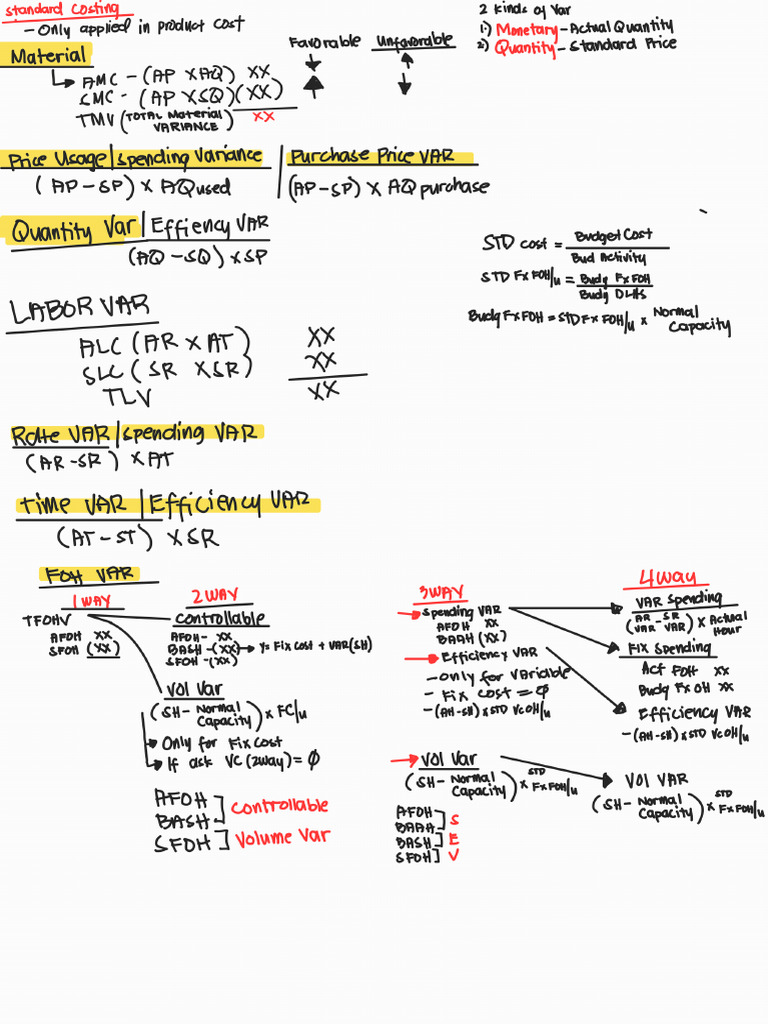 standard costing
- Only applied in product cost
2 kinds of Var
1.) Monetary - Actual Quantity
2) Quantity - Standard Price
Material
Favorable Unfavorable
AMC - (AP XAQ) XX
SMC - (AP XSQ) (XX)
TMV (TOTAL Material VARIANCE) XX
Price Usage|spending Variance
(AP - SP) X AQ used
Purchase Price VAR
(AP - SP) X AQ purchase
Quantity Var|Effiency VAR
(AQ - SQ) X SP
STD cost = Budget Cost
Bud Activity
STD Fx FOH/u = Budg FxFOH
Budg DLHs
Budg FxFOH = STD Fx FOH/u x Normal Capacity
LABOR VAR
ALC (AR X AT) XX
SLC ( SR XSR) XX
TLV XX
Rate VAR|spending VAR
(AR - SR) X AT
Time VAR|Efficiency VAR
(AT - ST) X SR
FOH VAR
1 WAY
TFOHV
AFOH XX
SFOH (XX)
2 WAY
controllable
AFOH - XX
BASH - (XX) Y= Fix cost + VAR (SH)
SFOH - (XX)
Vol Var
(SH - Normal Capacity) x FC/u
Only for Fix Cost
If ask VC (2way) = ϕ
AFOH
BASH
Controllable
SFOH
Volume Var
3WAY
Spending VAR
AFOH XX
BAAH (XX)
Efficiency VAR
- Only for Variable
- Fix Cost = ϕ
- (AH - SH) x STD VC OH/u
Vol Var
(SH - Normal Capacity) x STD FxFOH/u
AFOH
BAAH
S
BASH
E
SFOH
V
4way
VAR Spending
(AR VAR - SR VAR) x Actual Hour
FIX Spending
Act FOH XX
Budg FxOH XX
Efficiency VAR
- (AH - SH) x STD VC OH/u
VOl VAR
(SH - Normal Capacity) x STD FxFOH/u